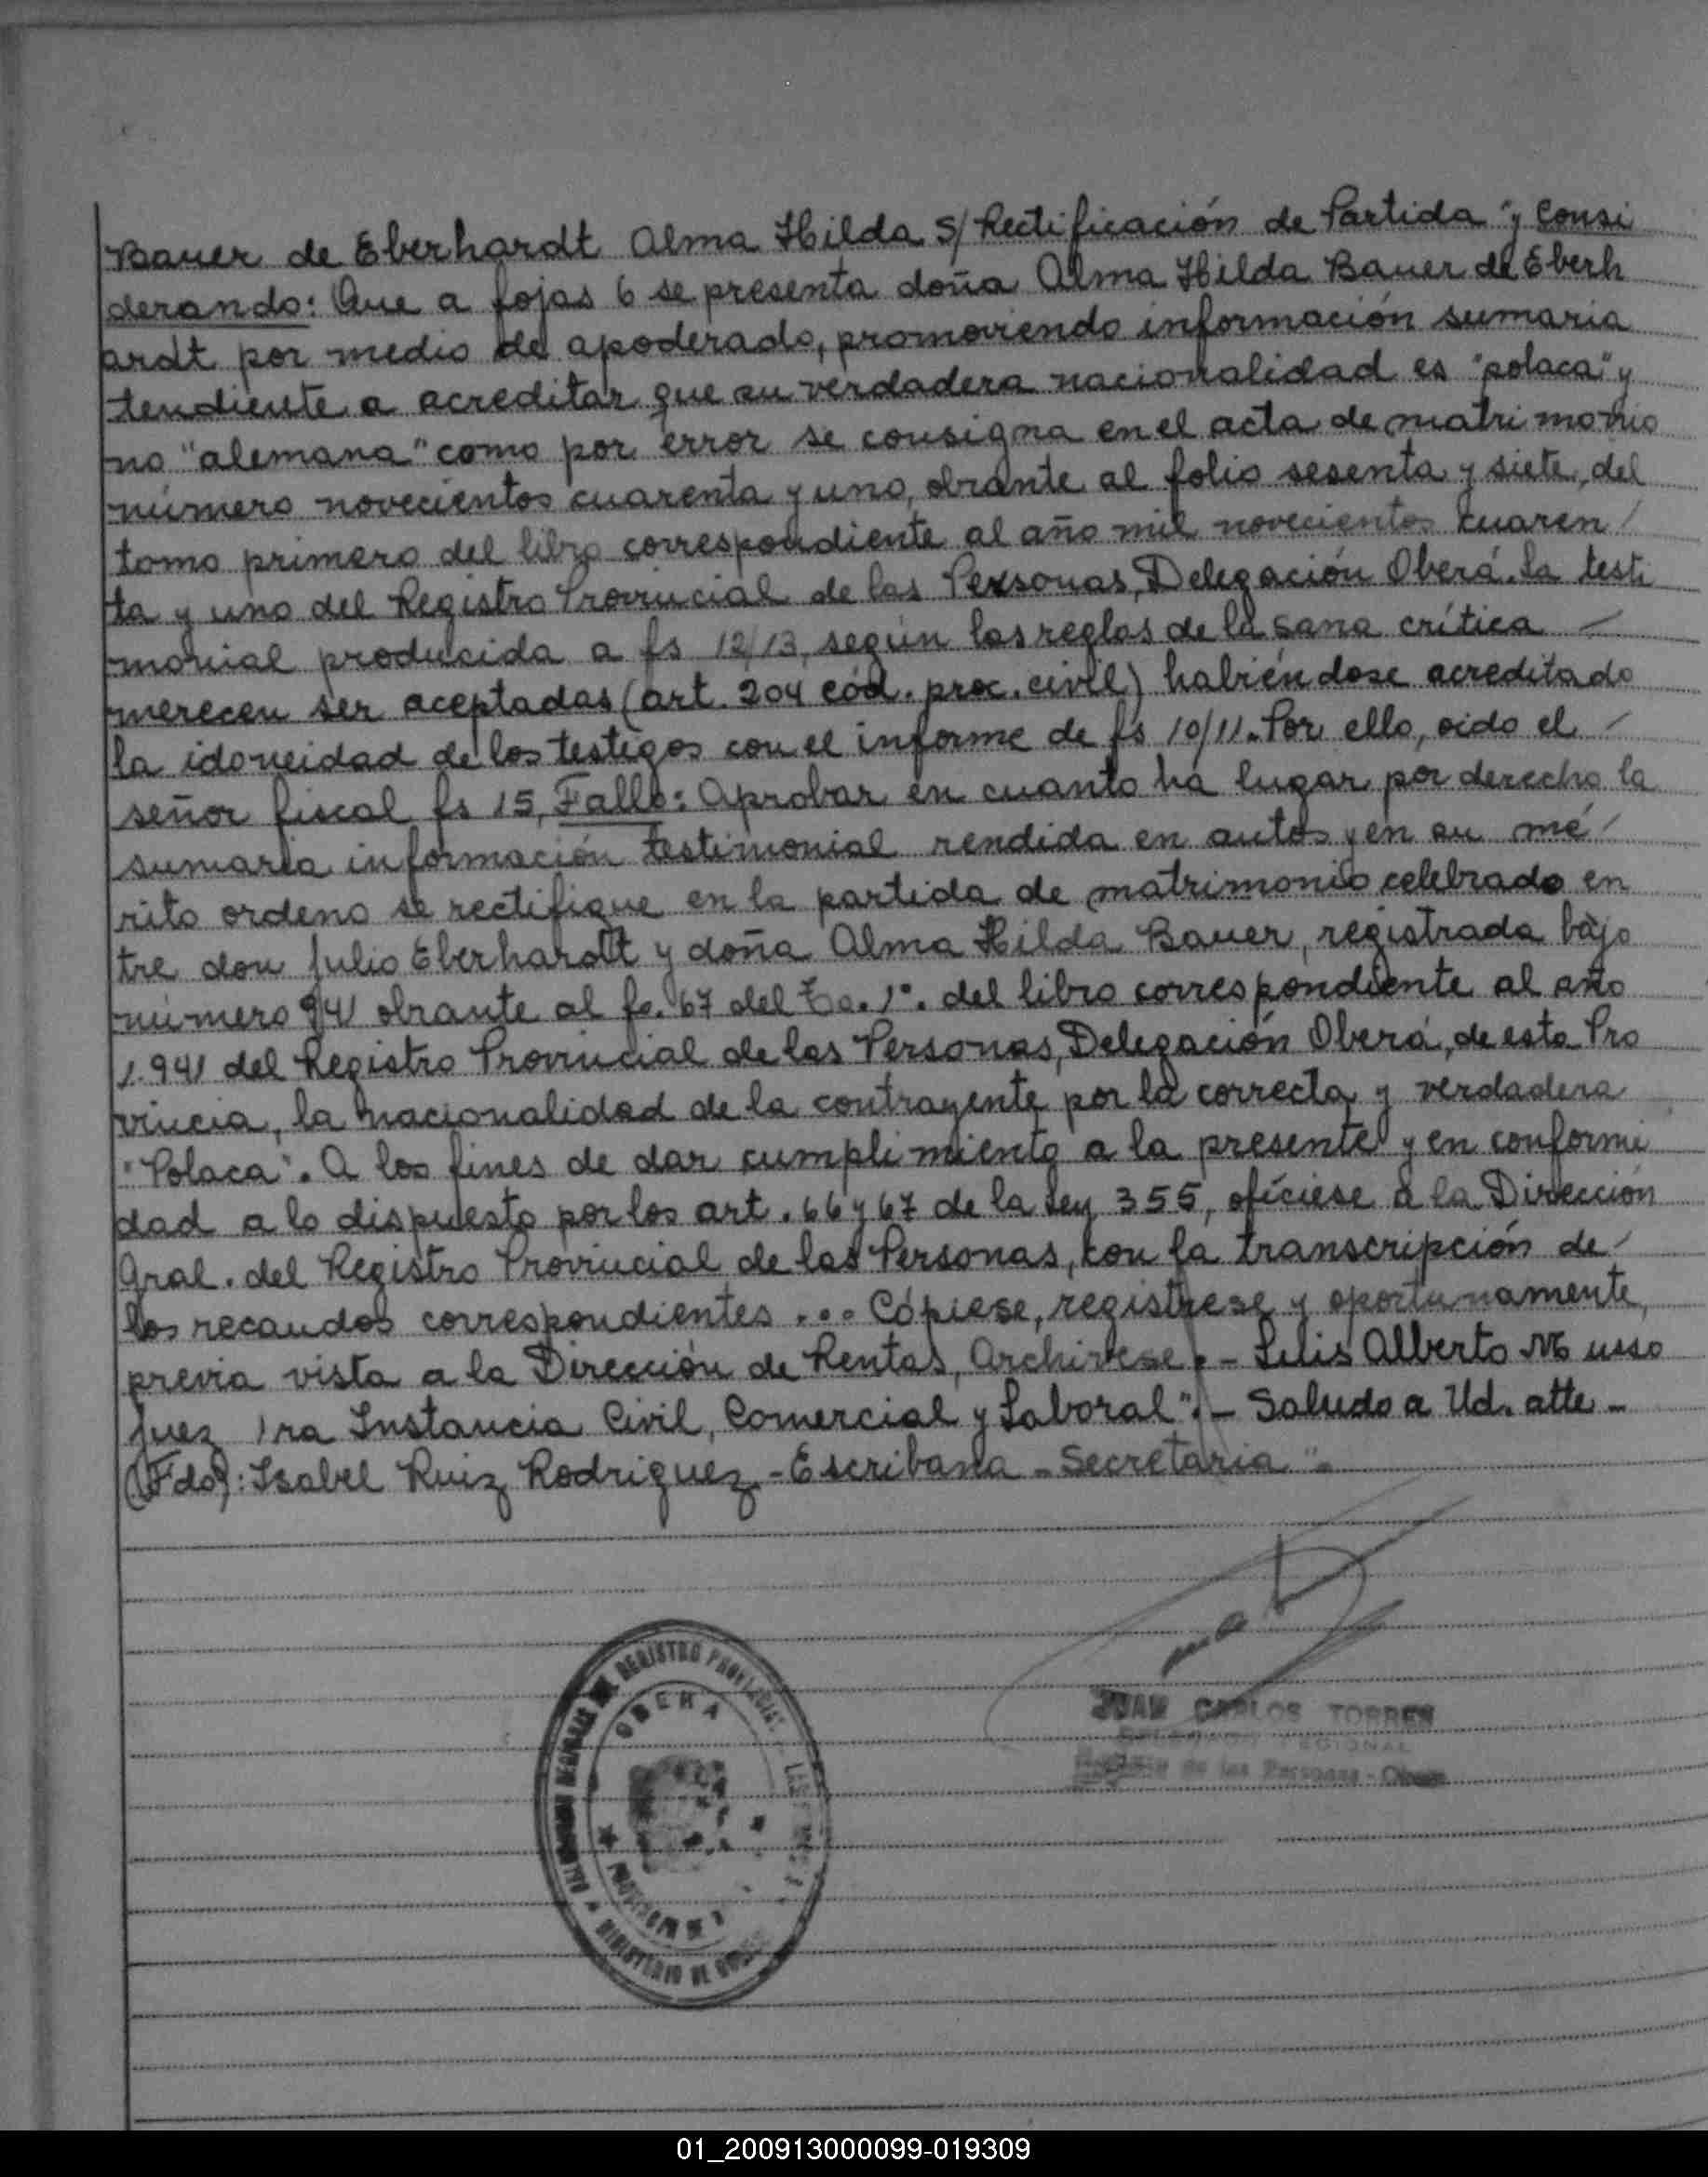 Bauer de Eberhardt Alma Hilda S/ Rectificación de Partida "y Consi
derando: Que a fojas 6 se presenta doña Alma Hilda Bauer de Eberh
ardt por medio de apoderado, promoviendo información sumaria
tendiente a acreditar que su verdadera nacionalidad es "polaca" y
no "alemana" como por error se consigna en el acta de matrimonio
número novecientos cuarenta y uno, obrante al folio sesenta y siete, del
tomo primero del libro correspondiente al año mil novecientos cuaren/
ta y uno del Registro Provincial de las Personas, Delegación Oberá. La testi
monial producida a fs 12/13, según las reglas de la sana crítica —
merecen ser aceptadas (art. 204 cód. proc. civil) habiéndose acreditado
la idoneidad de los testigos con el informe de fs 10/11. Por ello, oido el /
señor fiscal fs 15, Fallo: Aprobar en cuanto há lugar por derecho la
sumaria información testimonial rendida en autos y en su mé/
rito ordeno se rectifique en la partida de matrimonio celebrado en
tre don Julio Eberhardt y doña Alma Hilda Bauer, registrada bajo
número 941 obrante al fo. 67 del To. 1°. del libro correspondiente al año
1.941 del Registro Provincial de las Personas, Delegación Oberá, de esta Pro
vincia, la nacionalidad de la contrayente por la correcta y verdadera
"Polaca". A los fines de dar cumplimiento a la presente y en conformi
dad a lo dispuesto por los art. 66 y 67 de la Ley 355, ofíciese a la Dirección
Gral. del Registro Provincial de las Personas, con la transcripción de /
los recaudos correspondientes ... Cópiese, regístrese y oportunamente,
previa vista a la Dirección de Rentas, Archívese. - Lelis Alberto Musso
Juez 1ra Instancia Civil, Comercial y Laboral". - Saludo a Ud. atte -
(Fdo): Isabel Ruiz Rodriguez - Escribana - Secretaria "-
REGISTRO PROVINCIAL
OBERA
MINISTERIO DE
JUAN CARLOS TORRES
DELEGADO REGIONAL
de las Personas - Oberá
01_200913000099-019309